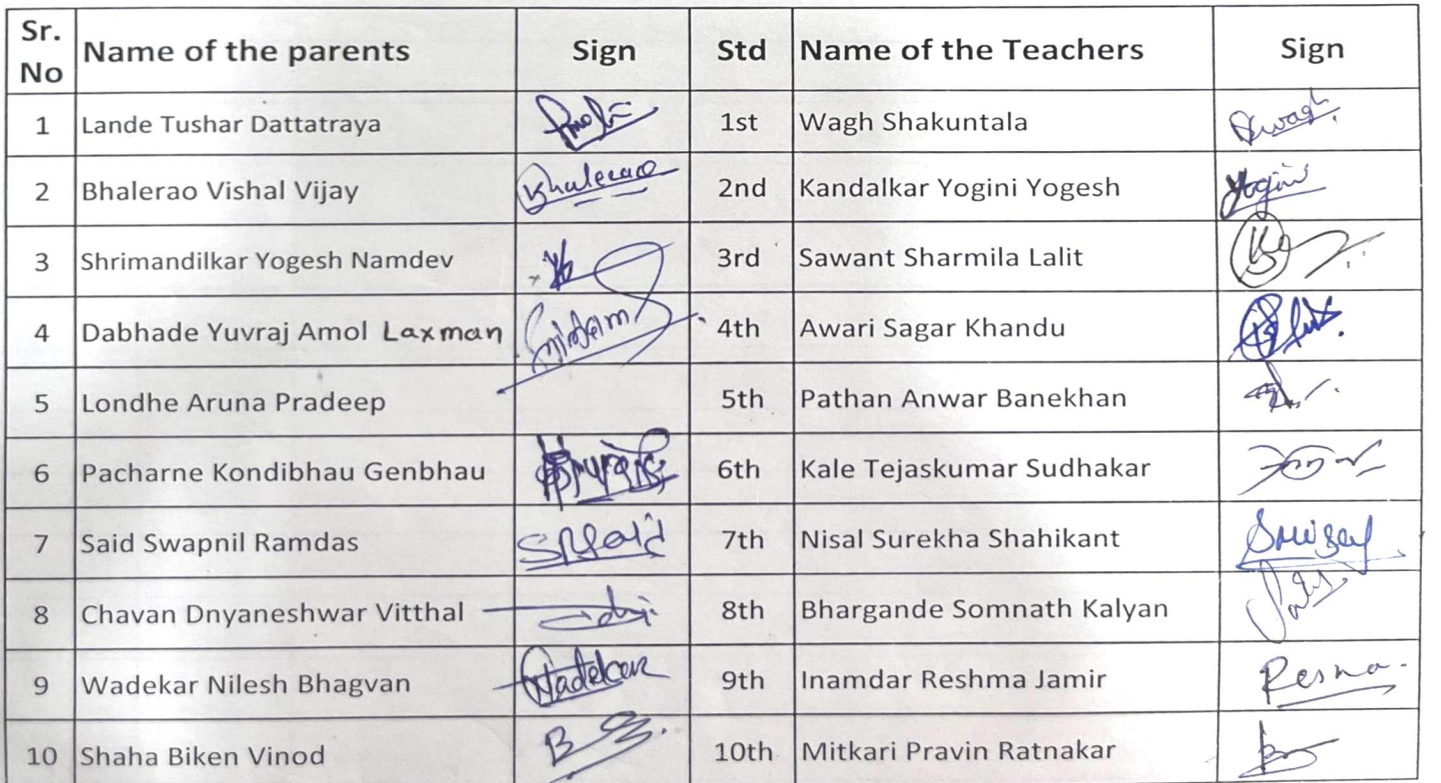 Sr. No Name of the parents Sign Std Name of the Teachers Sign
1 Lande Tushar Dattatraya 1st Wagh Shakuntala Swagh
2 Bhalerao Vishal Vijay Bhalerao 2nd Kandalkar Yogini Yogesh Yogini
3 Shrimandilkar Yogesh Namdev 3rd Sawant Sharmila Lalit
4 Dabhade Yuvraj Amol Laxman 4th Awari Sagar Khandu
5 Londhe Aruna Pradeep 5th Pathan Anwar Banekhan
6 Pacharne Kondibhau Genbhau 6th Kale Tejaskumar Sudhakar
7 Said Swapnil Ramdas SRSaid 7th Nisal Surekha Shahikant
8 Chavan Dnyaneshwar Vitthal 8th Bhargande Somnath Kalyan
9 Wadekar Nilesh Bhagvan Wadekar 9th Inamdar Reshma Jamir
10 Shaha Biken Vinod 10th Mitkari Pravin Ratnakar